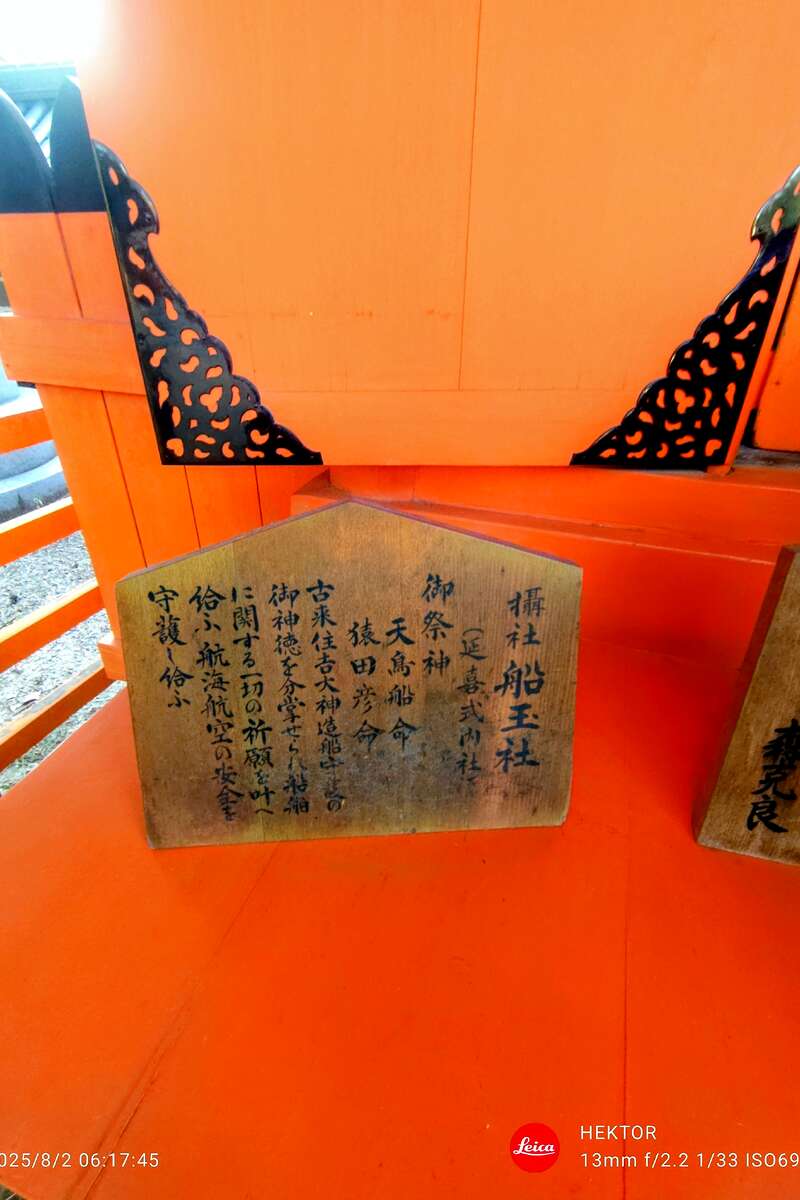 攝社 船玉社
(延喜式内社)
御祭神
天鳥船命
猿田彦命
古来住吉大神造船
御神徳を分掌せられ船舶
に関する一切の祈願を叶へ
給ふ 航海航空の安全を
守護し給ふ
克良
Leica
HEKTOR
025/8/2 06:17:45
13mm f/2.2 1/33 ISO69